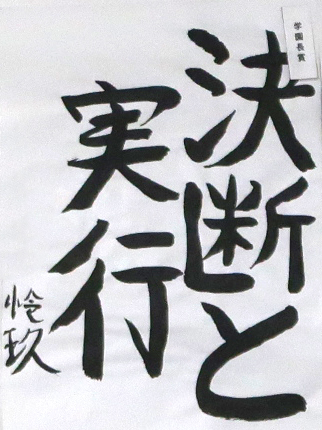 学園長賞
決断と
実行
怜玖